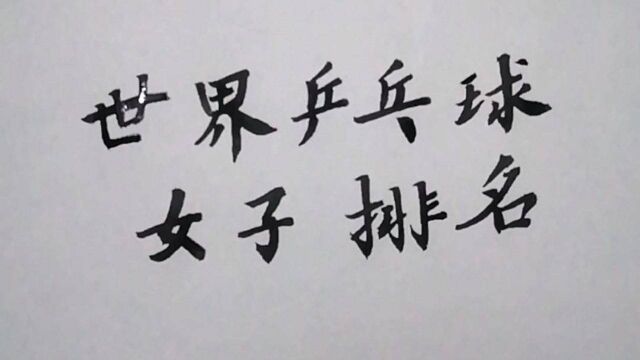 世界乒乓球
女子排名